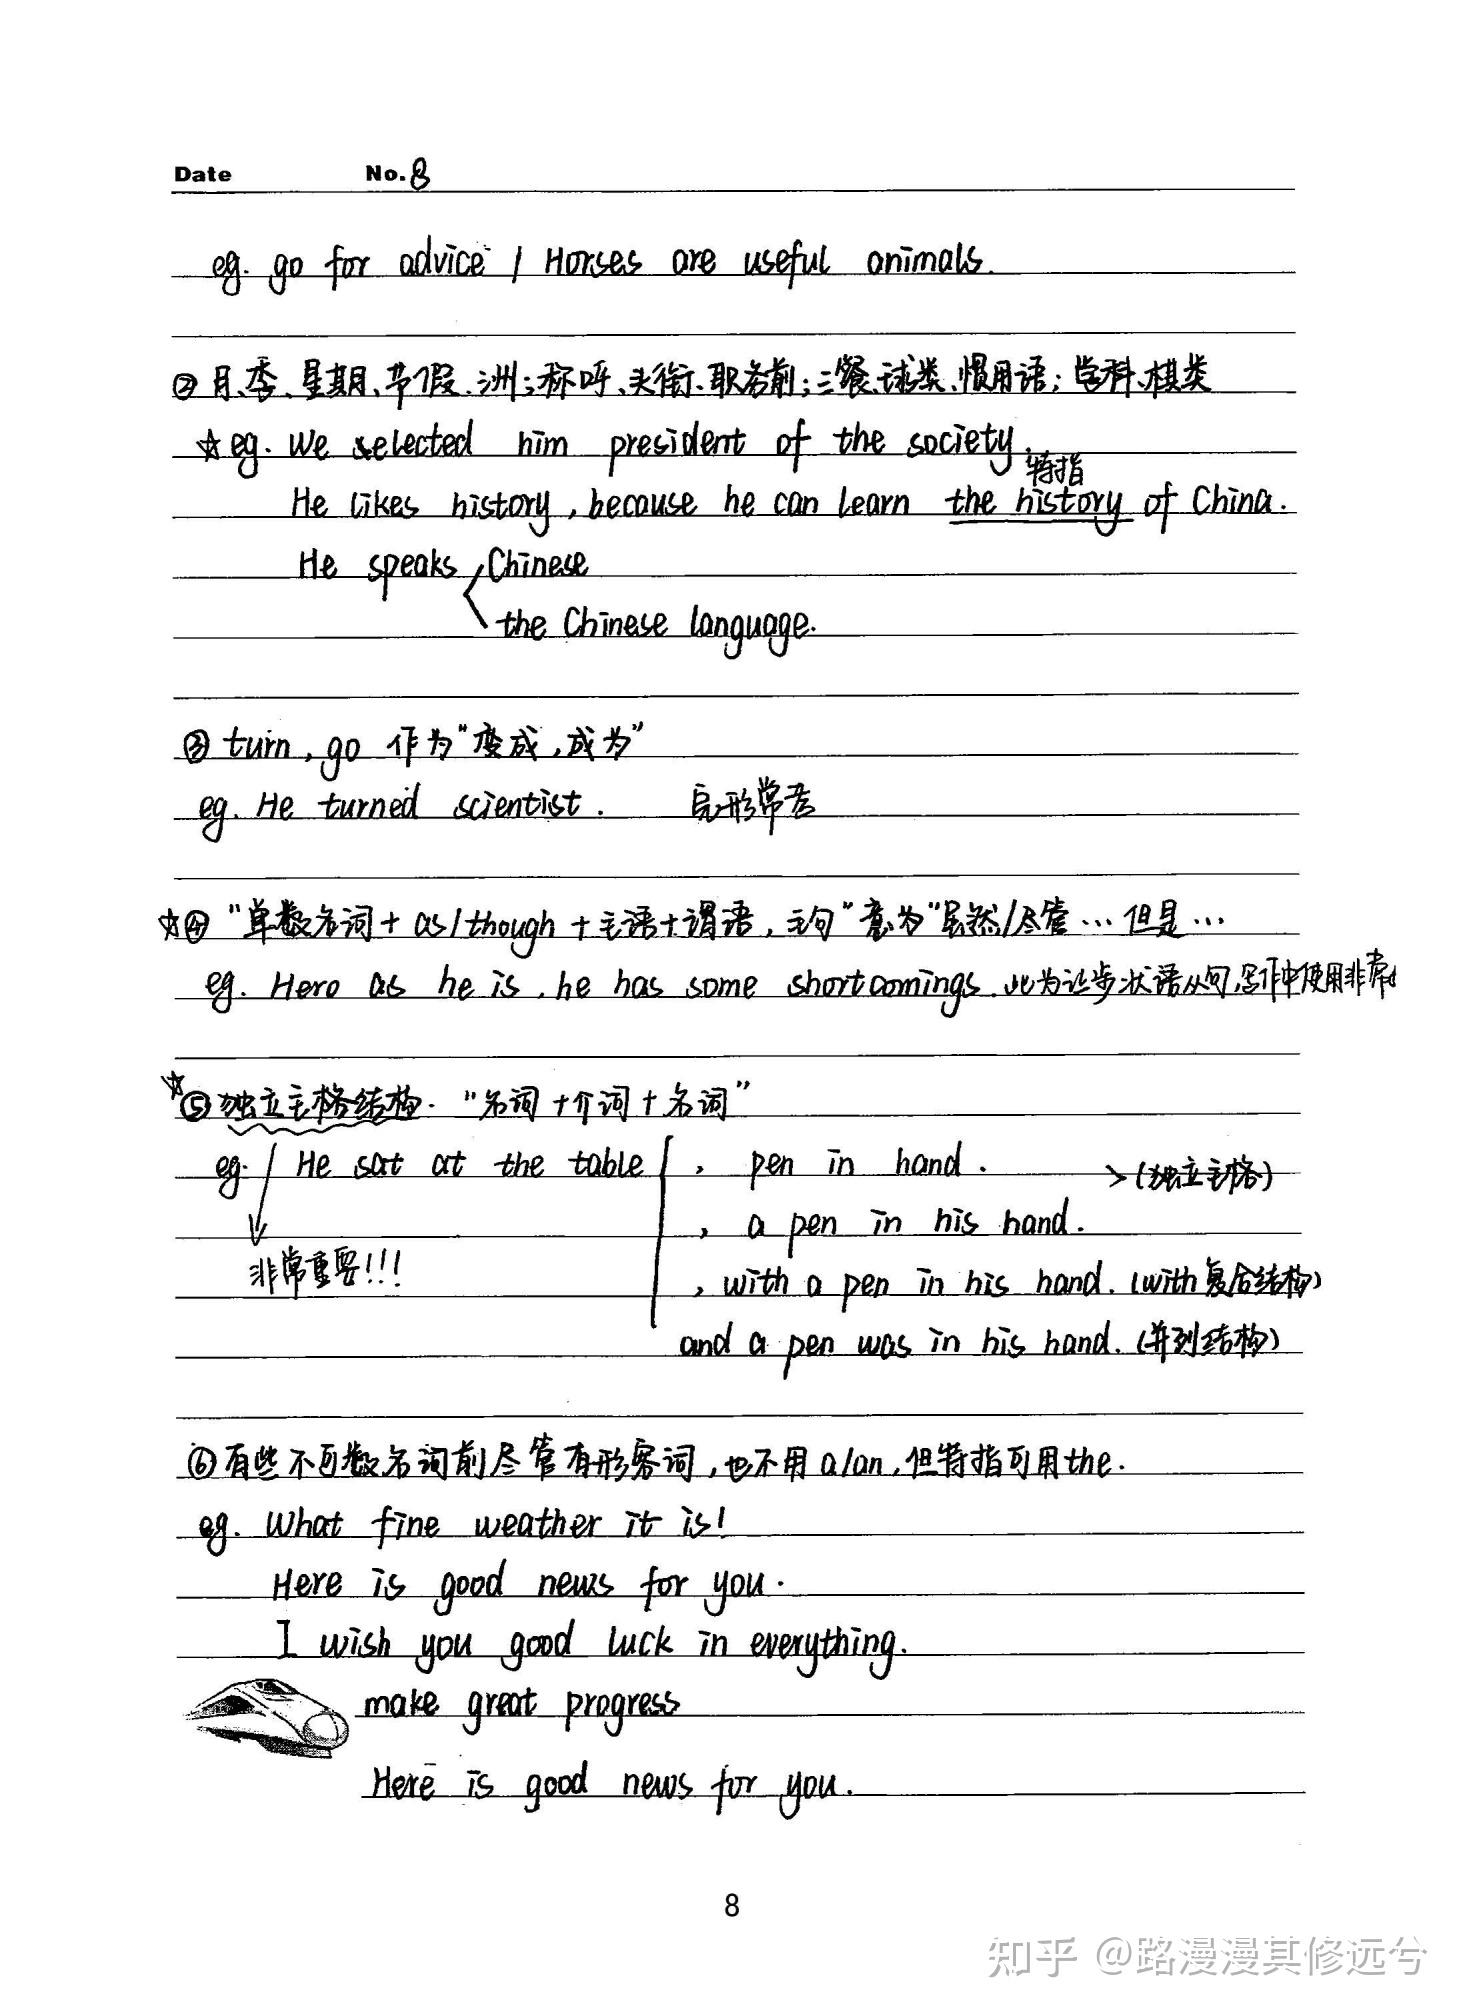 Date No. 8
eg. go for advice / Horses are useful animals.
②月、季、星期、节假、洲;称呼、头衔、职务前;三餐、球类、惯用语;学科、棋类
☆eg. We selected him president of the society.
特指
He likes history, because he can learn the history of China.
He speaks Chinese
the Chinese language.
③ turn, go 作为"变成,成为"
eg. He turned scientist. 完形常考
☆④ "单数名词+as/though+主语+谓语,主句"意为"虽然/尽管…但是…
eg. Hero as he is, he has some shortcomings. 此为让步状语从句,写作中使用非常
☆⑤独立主格结构. "名词+介词+名词"
eg. He sat at the table , pen in hand. >(独立主格)
, a pen in his hand.
非常重要!!!
, with a pen in his hand. (with复合结构)
and a pen was in his hand. (并列结构)
⑥有些不可数名词前尽管有形容词,也不用a/an,但特指可用the.
eg. What fine weather it is!
Here is good news for you.
I wish you good luck in everything.
make great progress
Here is good news for you.
8
知乎 @路漫漫其修远兮